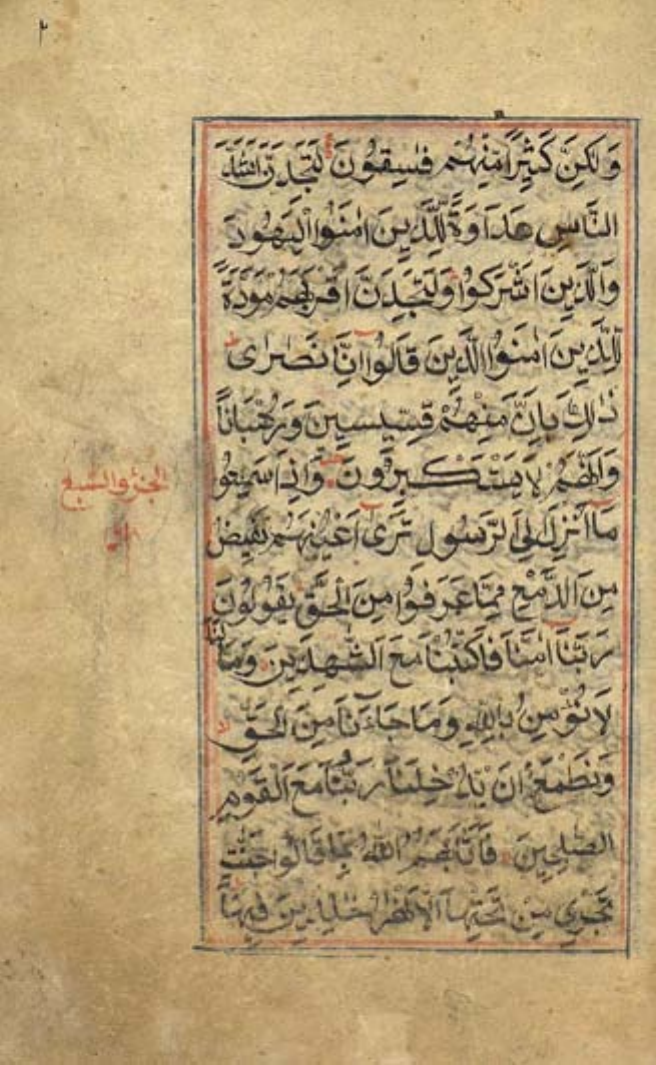 ٢
وَلٰكِنَّ كَثِيْرًا مِّنْهُمْ فٰسِقُوْنَ لَتَجِدَنَّ اَشَدَّ
النَّاسِ عَدَاوَةً لِّلَّذِيْنَ اٰمَنُوا الْيَهُوْدَ
وَالَّذِيْنَ اَشْرَكُوْا وَلَتَجِدَنَّ اَقْرَبَهُمْ مَّوَدَّةً
لِّلَّذِيْنَ اٰمَنُوا الَّذِيْنَ قَالُوْٓا اِنَّا نَصٰرٰى
ذٰلِكَ بِاَنَّ مِنْهُمْ قِسِّيْسِيْنَ وَرُهْبَانًا
وَّاَنَّهُمْ لَا يَسْتَكْبِرُوْنَ وَاِذَا سَمِعُوْا
مَآ اُنْزِلَ اِلَى الرَّسُوْلِ تَرٰٓى اَعْيُنَهُمْ تَفِيْضُ
مِنَ الدَّمْعِ مِمَّا عَرَفُوْا مِنَ الْحَقِّ يَقُوْلُوْنَ
رَبَّنَآ اٰمَنَّا فَاكْتُبْنَا مَعَ الشّٰهِدِيْنَ وَمَا لَنَا
لَا نُؤْمِنُ بِاللّٰهِ وَمَا جَآءَنَا مِنَ الْحَقِّ
وَنَطْمَعُ اَنْ يُّدْخِلَنَا رَبُّنَا مَعَ الْقَوْمِ
الصّٰلِحِيْنَ فَاَثَابَهُمُ اللّٰهُ بِمَا قَالُوْا جَنّٰتٍ
تَجْرِيْ مِنْ تَحْتِهَا الْاَنْهٰرُ خٰلِدِيْنَ فِيْهَا
الجزو السبع